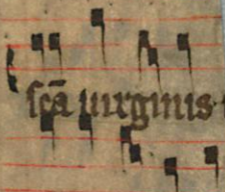 sc̄a uirginis